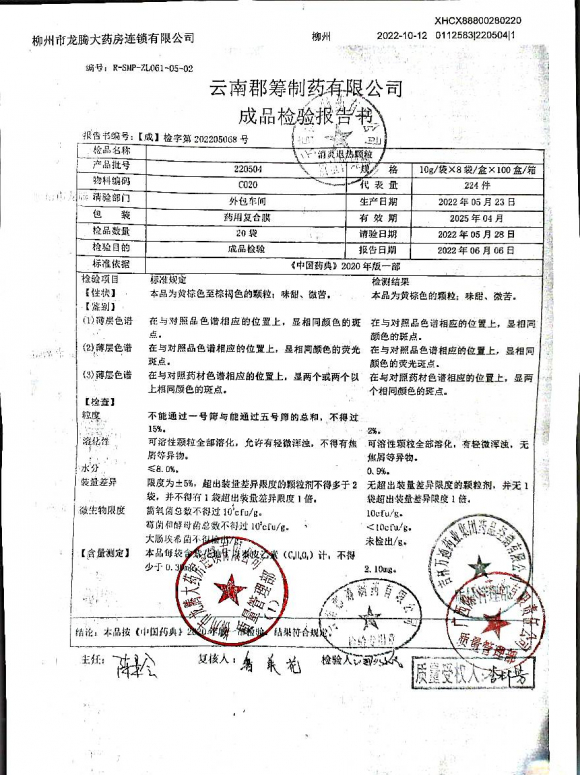 XHCX88800280220
柳州市龙腾大药房连锁有限公司 柳州 2022-10-12 0112583|220504|1
编号：R-SMP-ZL061-05-02
云南郡筹制药有限公司
成品检验报告书
报告书编号：【成】检字第 202205068 号
检品名称 消炎退热颗粒
产品批号 220504 规格 10g/袋×8袋/盒×100盒/箱
物料编码 C020 代表量 224件
请验部门 外包车间 生产日期 2022年05月23日
包装 药用复合膜 有效期 2025年04月
检品数量 20袋 请验日期 2022年05月28日
检验目的 成品检验 报告日期 2022年06月06日
标准依据 《中国药典》2020年版一部
检验项目 标准规定 检测结果
【性状】 本品为黄棕色至棕褐色的颗粒；味甜、微苦。 本品为黄棕色的颗粒；味甜、微苦。
【鉴别】
(1)薄层色谱 在与对照品色谱相应的位置上，显相同颜色的斑 在与对照品色谱相应的位置上，显相同
点。 颜色的斑点。
(2)薄层色谱 在与对照品色谱相应的位置上，显相同颜色的荧光 在与对照品色谱相应的位置上，显相同
斑点。 颜色的荧光斑点。
(3)薄层色谱 在与对照药材色谱相应的位置上，显两个或两个以 在与对照药材色谱相应的位置上，显两
上相同颜色的斑点。 个相同颜色的斑点。
【检查】
粒度 不能通过一号筛与能通过五号筛的总和，不得过
15%。 2%。
溶化性 可溶性颗粒全部溶化，允许有轻微浑浊，不得有焦 可溶性颗粒全部溶化，有轻微浑浊，无
屑等异物。 焦屑等异物。
水分 ≤8.0%。 0.9%。
装量差异 限度为±5%，超出装量差异限度的颗粒剂不得多于2 无超出装量差异限度的颗粒剂，并无1
袋，并不得有1袋超出装量差异限度1倍。 袋超出装量差异限度1倍。
微生物限度 需氧菌总数不得过10³cfu/g。 10cfu/g。
霉菌和酵母菌总数不得过10²cfu/g。 <10cfu/g。
大肠埃希菌不得检出/g。 未检出/g。
【含量测定】 计，不得
少于 2.10mg。
结论：本品按《中国药典》2020年版一部检验，结果符合规定。
主任： 复核人： 检验人：
质量受权人
质量管理部
(1)
检验专用章
质量管理部